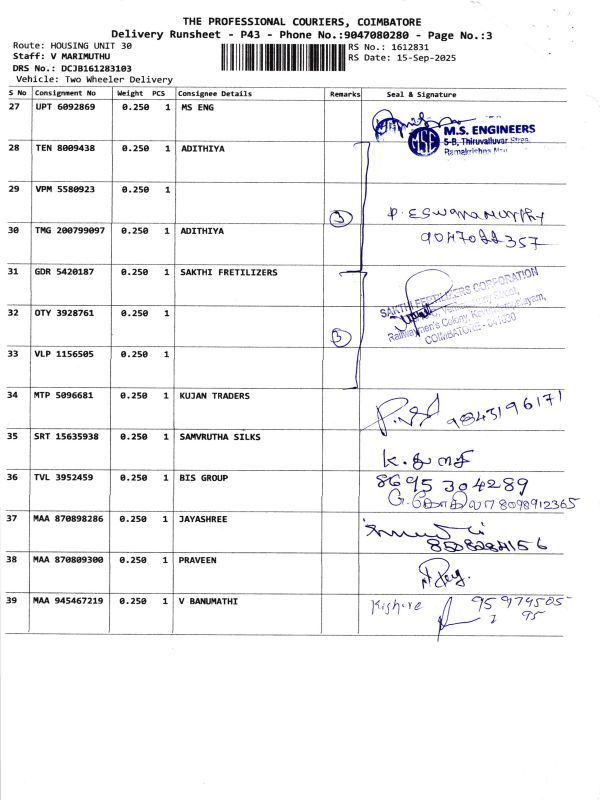 THE PROFESSIONAL COURIERS, COIMBATORE
Delivery Runsheet - P43 - Phone No.:9047080280 - Page No.:3
Route: HOUSING UNIT 30 RS No.: 1612831
Staff: V MARIMUTHU RS Date: 15-Sep-2025
DRS No.: DCJB161283103
Vehicle: Two Wheeler Delivery
S No Consignment No Weight PCS Consignee Details Remarks Seal & Signature
27 UPT 6092869 0.250 1 MS ENG
M.S. ENGINEERS
5-B, Thiruvalluvar
Ramakrishna
MSE
28 TEN 8009438 0.250 1 ADITHIYA
29 VPM 5580923 0.250 1
3 P. ESWARAMURTHY
30 TMG 200799097 0.250 1 ADITHIYA
31 GDR 5420187 0.250 1 SAKTHI FRETILIZERS
SAKTHI FERTILIZERS CORPORATION
32 OTY 3928761 0.250 1
3 Colony,
COIMBATORE - 641030
33 VLP 1156505 0.250 1
34 MTP 5096681 0.250 1 KUJAN TRADERS
9843196171
35 SRT 15635938 0.250 1 SAMVRUTHA SILKS
36 TVL 3952459 0.250 1 BIS GROUP 8695 304289
8098912365
37 MAA 870898286 0.250 1 JAYASHREE
38 MAA 870809300 0.250 1 PRAVEEN
39 MAA 945467219 0.250 1 V BANUMATHI Kishore